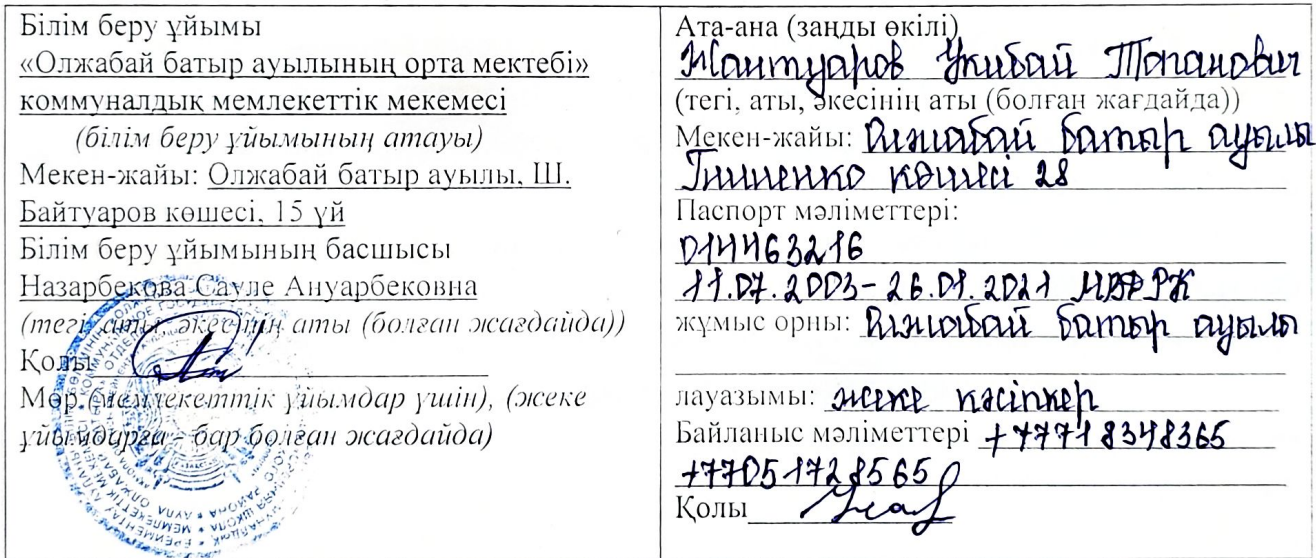 Білім беру ұйымы
«Олжабай батыр ауылының орта мектебі»
коммуналдық мемлекеттік мекемесі
(білім беру ұйымының атауы)
Мекен-жайы: Олжабай батыр ауылы, Ш.
Байтуаров көшесі, 15 үй
Білім беру ұйымының басшысы
Назарбекова Сауле Ануарбековна
(тегі, аты, әкесінің аты (болған жағдайда))
Қолы
Мөр (мемлекеттік ұйымдар үшін), (жеке
ұйымдарға - бар болған жағдайда)
Ата-ана (заңды өкілі)
Жантуаров Укибай Тапанович
(тегі, аты, әкесінің аты (болған жағдайда))
Мекен-жайы: Олжабай батыр ауылы
көшесі 28
Паспорт мәліметтері:
014463216
11.07.2003-26.01.2021 РК
жұмыс орны: Олжабай батыр ауылы
лауазымы: жеке кәсіпкер
Байланыс мәліметтері +77718348365
+77051728565
Қолы